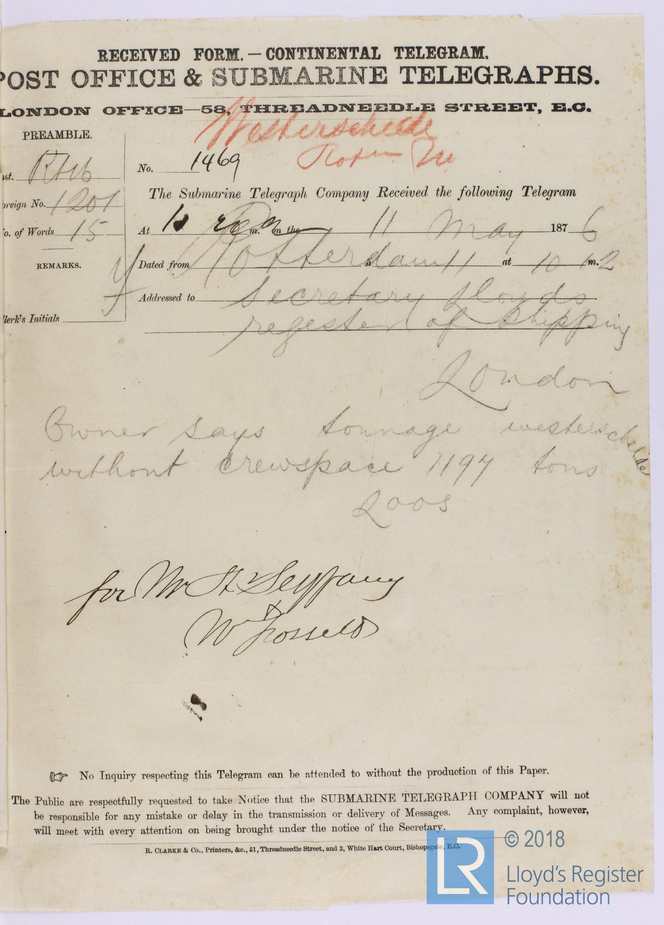 RECEIVED FORM.—CONTINENTAL TELEGRAM.
POST OFFICE & SUBMARINE TELEGRAPHS.
LONDON OFFICE—58, THREADNEEDLE STREET, E.C.
Westerschelde
PREAMBLE.
No. 1469
The Submarine Telegraph Company Received the following Telegram
oreign No. 1201
o. of Words 15
At m. on the 11 May 1876
REMARKS.
Dated from Rotterdam 11 at 10 12 m.
Addressed to Secretary Lloyds
lerk's Initials
register of Shipping
London
Owner says tonnage westerschelde
without crewspace 1197 tons
Loos
for Mr H Seyfang
W
No Inquiry respecting this Telegram can be attended to without the production of this Paper.
The Public are respectfully requested to take Notice that the SUBMARINE TELEGRAPH COMPANY will not
be responsible for any mistake or delay in the transmission or delivery of Messages. Any complaint, however,
will meet with every attention on being brought under the notice of the Secretary.
R. CLARKE & Co., Printers, &c., 51, Threadneedle Street, and 3, White Hart Court, Bishopsgate, E.C.
LR
© 2018
Lloyd's Register
Foundation